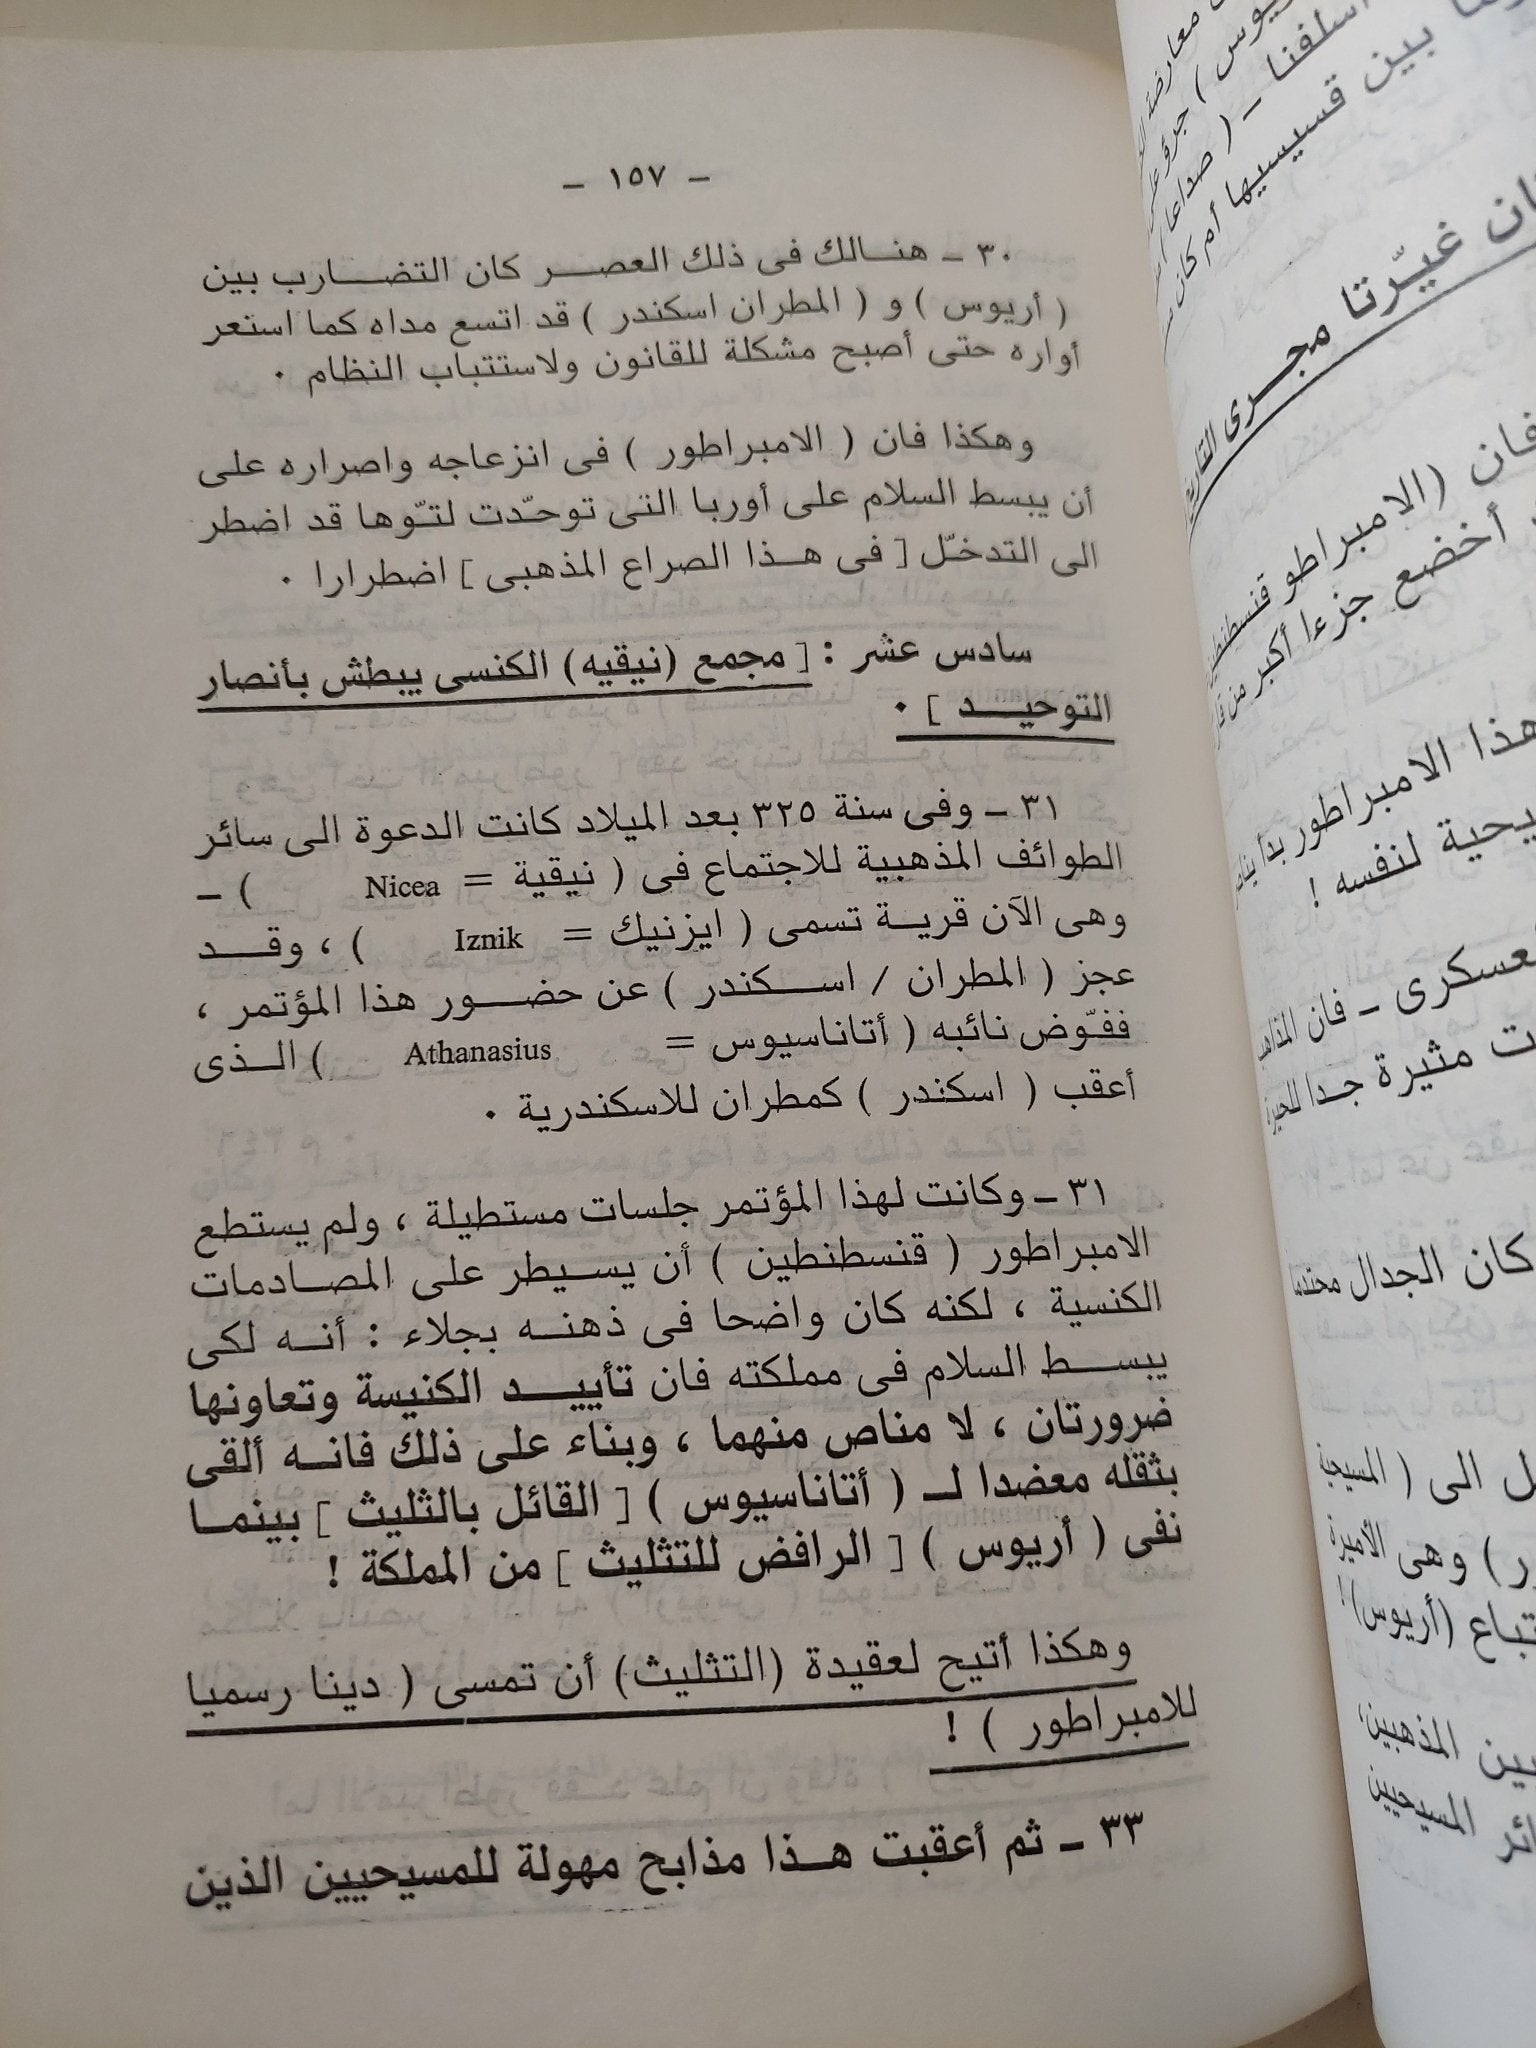 — ١٥٧ —
٣٠ — هنالك فى ذلك العصر كان التضارب بين
( أريوس ) و ( المطران اسكندر ) قد اتسع مداه كما استعر
أواره حتى أصبح مشكلة للقانون ولاستتباب النظام ٠
وهكذا فان ( الامبراطور ) فى انزعاجه واصراره على
أن يبسط السلام على أوربا التى توحّدت لتوّها قد اضطر
الى التدخّل [ فى هذا الصراع المذهبى ] اضطرارا ٠
سادس عشر : [ مجمع (نيقيه) الكنسى يبطش بأنصار
التوحيد ] ٠
٣١ — وفى سنة ٣٢٥ بعد الميلاد كانت الدعوة الى سائر
الطوائف المذهبية للاجتماع فى ( نيقية = Nicea ) —
وهى الآن قرية تسمى ( ايزنيك = Iznik ) ، وقد
عجز ( المطران / اسكندر ) عن حضور هذا المؤتمر ،
ففوّض نائبه ( أتاناسيوس = Athanasius ) الذى
أعقب ( اسكندر ) كمطران للاسكندرية ٠
٣١ — وكانت لهذا المؤتمر جلسات مستطيلة ، ولم يستطع
الامبراطور ( قنسطنطين ) أن يسيطر على المصادمات
الكنسية ، لكنه كان واضحا فى ذهنه بجلاء : أنه لكى
يبسط السلام فى مملكته فان تأييد الكنيسة وتعاونها
ضرورتان ، لا مناص منهما ، وبناء على ذلك فانه ألقى
بثقله معضدا لـ ( أتاناسيوس ) [ القائل بالثليث ] بينما
نفى ( أريوس ) [ الرافض للتثليث ] من المملكة !
وهكذا أتيح لعقيدة (التثليث) أن تمسى ( دينا رسميا
للامبراطور ) !
٣٣ — ثم أعقبت هذا مذابح مهولة للمسيحيين الذين
معارضة
جرؤ
أسلفنا — ( صداعا
بين قسيسيها أم كان
غيّرتا مجرى
فان (الامبراطو قنسطنطين
أخضع جزءا أكبر من
هذا الامبراطور بدأ
لنفسه !
— فان
مثيرة جدا للحيرة
كان الجدال محتدما
الى ( المسيحية
) وهى الأميرة
(أريوس) !
المذهبين،
المسيحيين